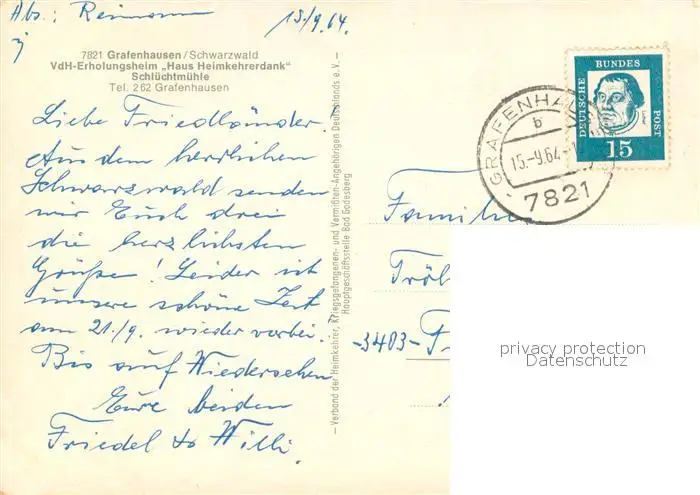 Abs.: Reimann 15./9.64.
7821 Grafenhausen/Schwarzwald
VdH-Erholungsheim „Haus Heimkehrerdank"
Schlüchtmühle
Tel. 262 Grafenhausen
Liebe Friedländer!
Aus dem herrlichen
Schwarzwald senden
wir Euch drei
die herzlichsten
Grüße! Leider ist
unsere schöne Zeit
am 21./9. wieder vorbei.
Bis auf Wiedersehen
Eure beiden
Friedel & Willi.
– Verband der Heimkehrer, Kriegsgefangenen- und Vermißten-Angehörigen Deutschlands e.V. –
Hauptgeschäftsstelle Bad Godesberg
GRAFENHAU
b
15.-9.64-1
7821
DEUTSCHE BUNDES POST
15
Familie
Tröl
-3403-F
privacy protection
Datenschutz